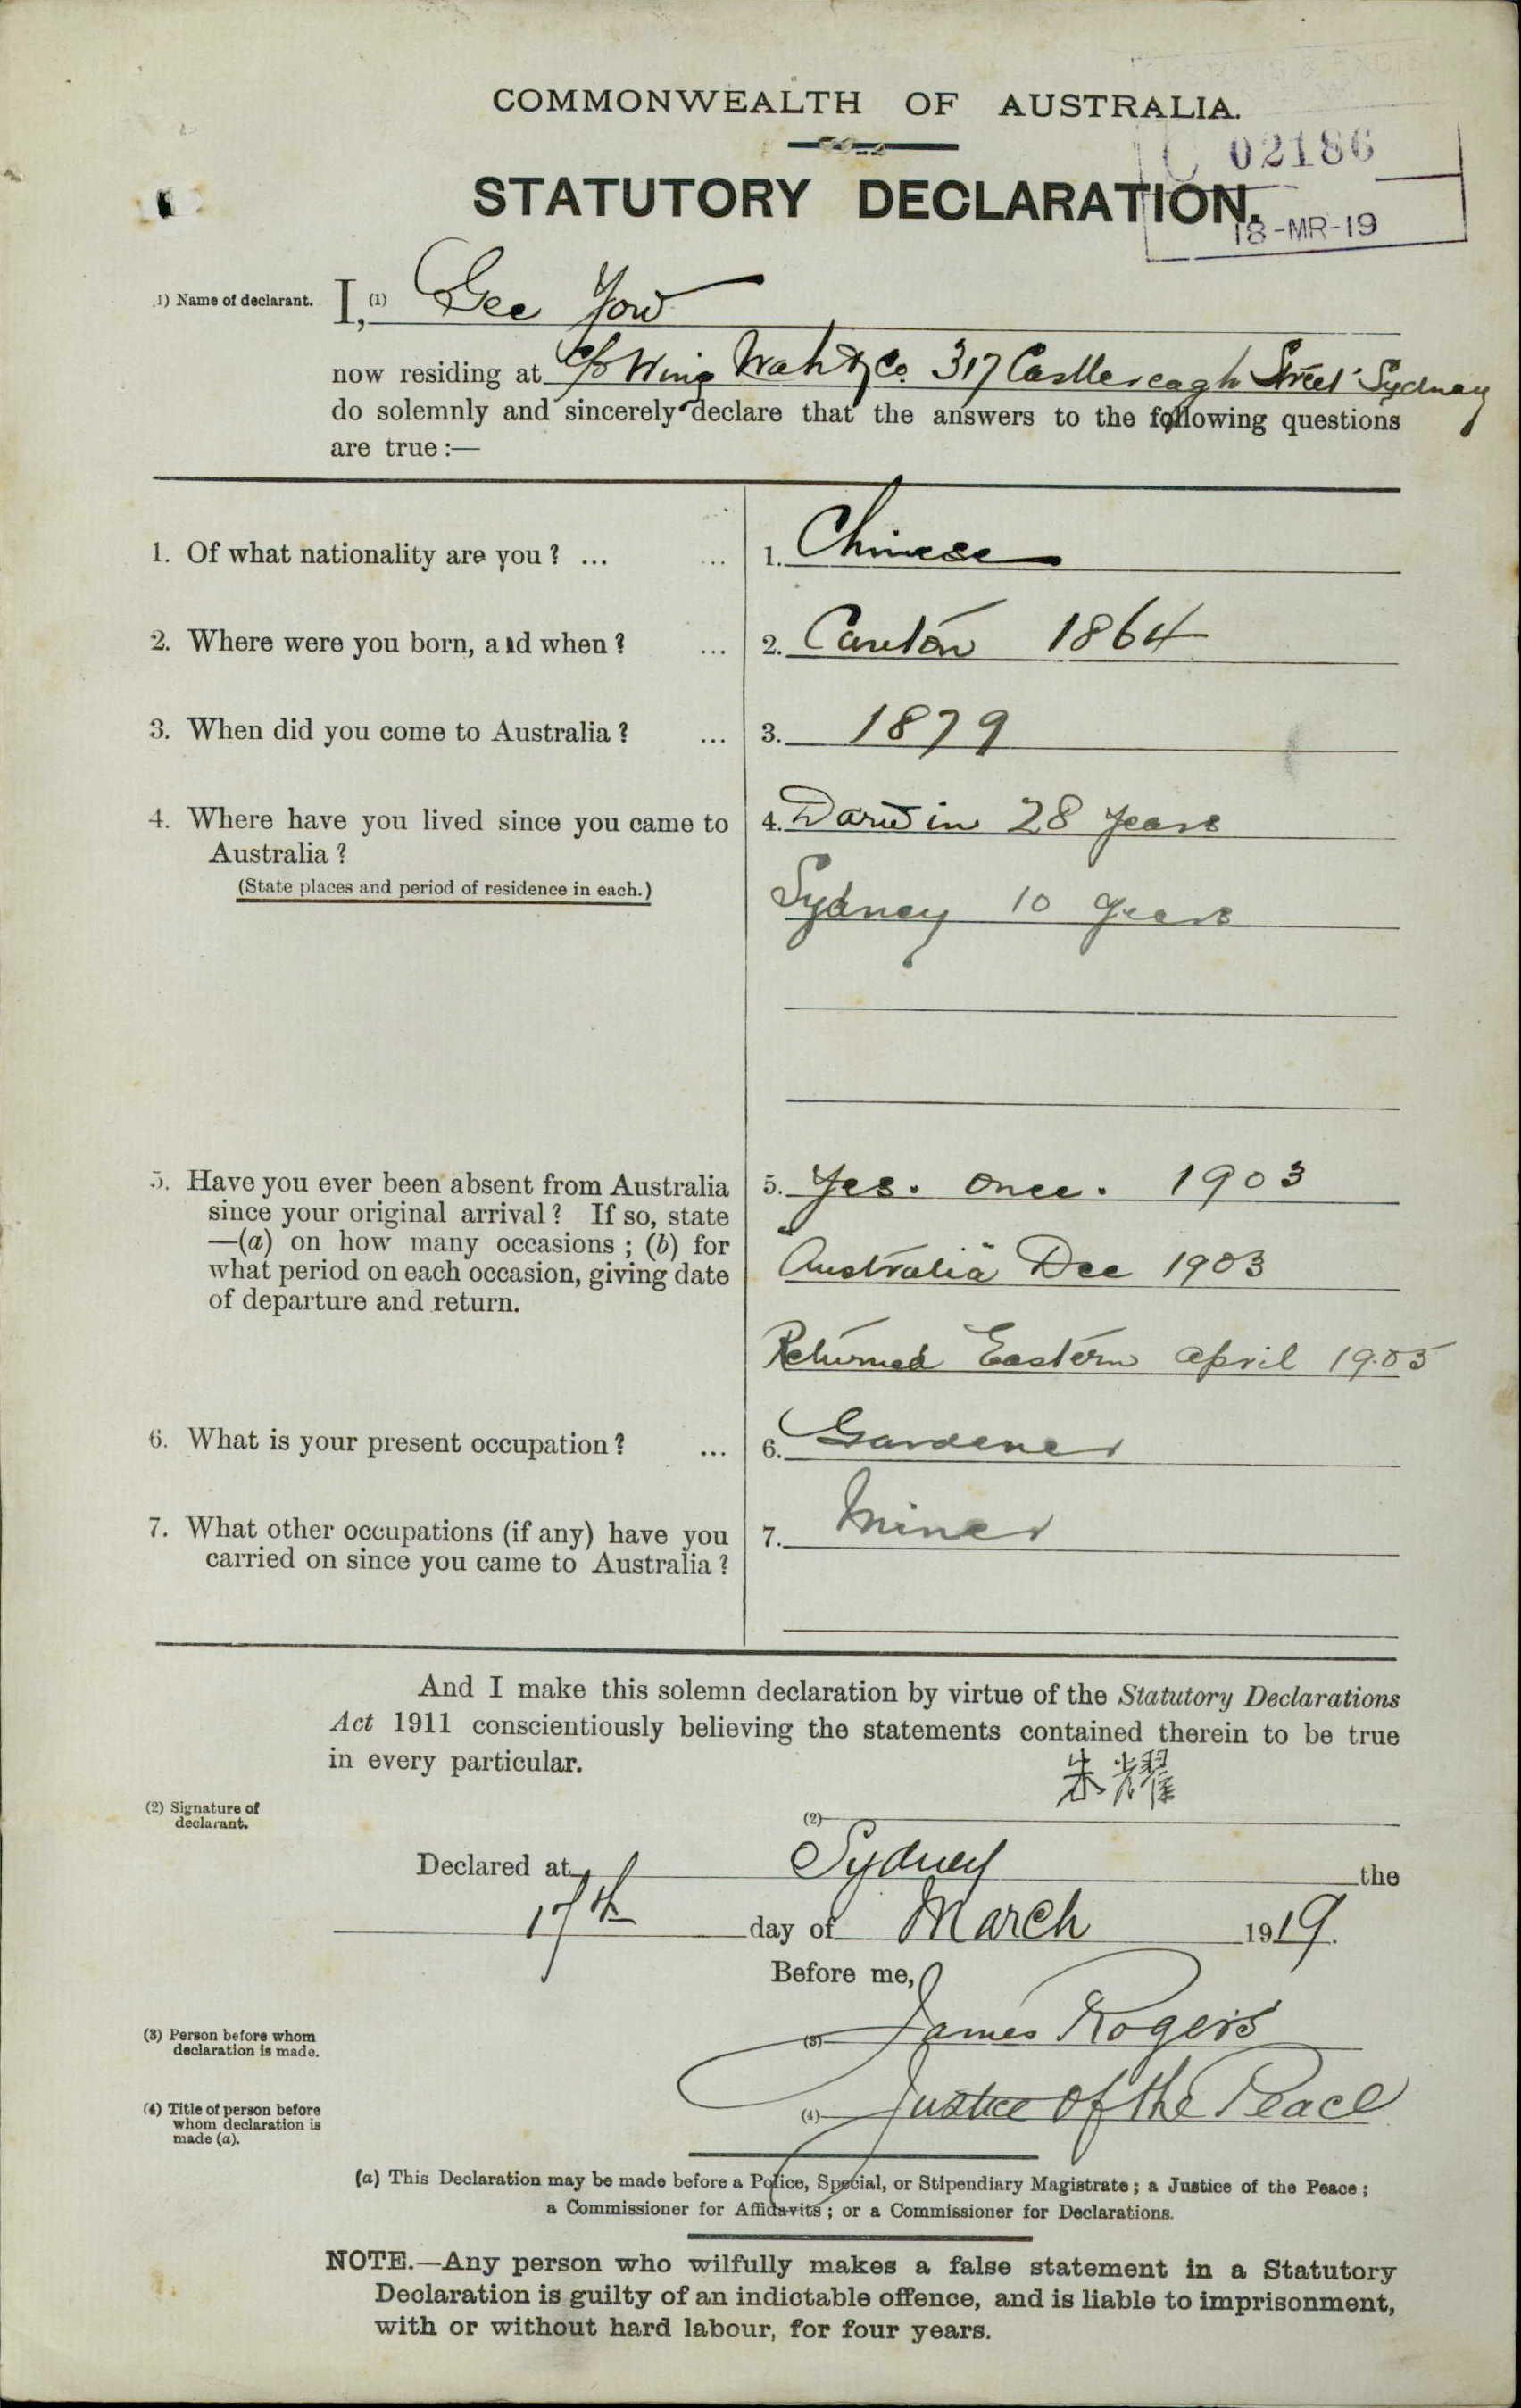 COMMONWEALTH OF AUSTRALIA.
C 02186
STATUTORY DECLARATION.
18-MR-19
1) Name of declarant. I, (1) Gee Yow
now residing at c/o Wing Wah & Co. 317 Castlereagh Street Sydney
do solemnly and sincerely declare that the answers to the following questions
are true:—
1. Of what nationality are you? ... ... 1. Chinese
2. Where were you born, and when? ... 2. Canton 1864
3. When did you come to Australia? ... 3. 1879
4. Where have you lived since you came to 4. Darwin 28 years
Australia?
(State places and period of residence in each.) Sydney 10 years
5. Have you ever been absent from Australia 5. Yes. Once. 1903
since your original arrival? If so, state
—(a) on how many occasions; (b) for
what period on each occasion, giving date "Australia" Dec 1903
of departure and return.
Returned Eastern April 1905
6. What is your present occupation? ... 6. Gardener
7. What other occupations (if any) have you 7. Miner
carried on since you came to Australia?
And I make this solemn declaration by virtue of the Statutory Declarations
Act 1911 conscientiously believing the statements contained therein to be true
in every particular.
朱耀
(2) Signature of
declarant.
(2)
Declared at Sydney the
17th day of March 1919.
Before me,
(3) Person before whom
declaration is made.
(3) James Rogers
(4) Title of person before
whom declaration is
made (a).
(4) Justice of the Peace
(a) This Declaration may be made before a Police, Special, or Stipendiary Magistrate; a Justice of the Peace;
a Commissioner for Affidavits; or a Commissioner for Declarations.
NOTE.—Any person who wilfully makes a false statement in a Statutory
Declaration is guilty of an indictable offence, and is liable to imprisonment,
with or without hard labour, for four years.